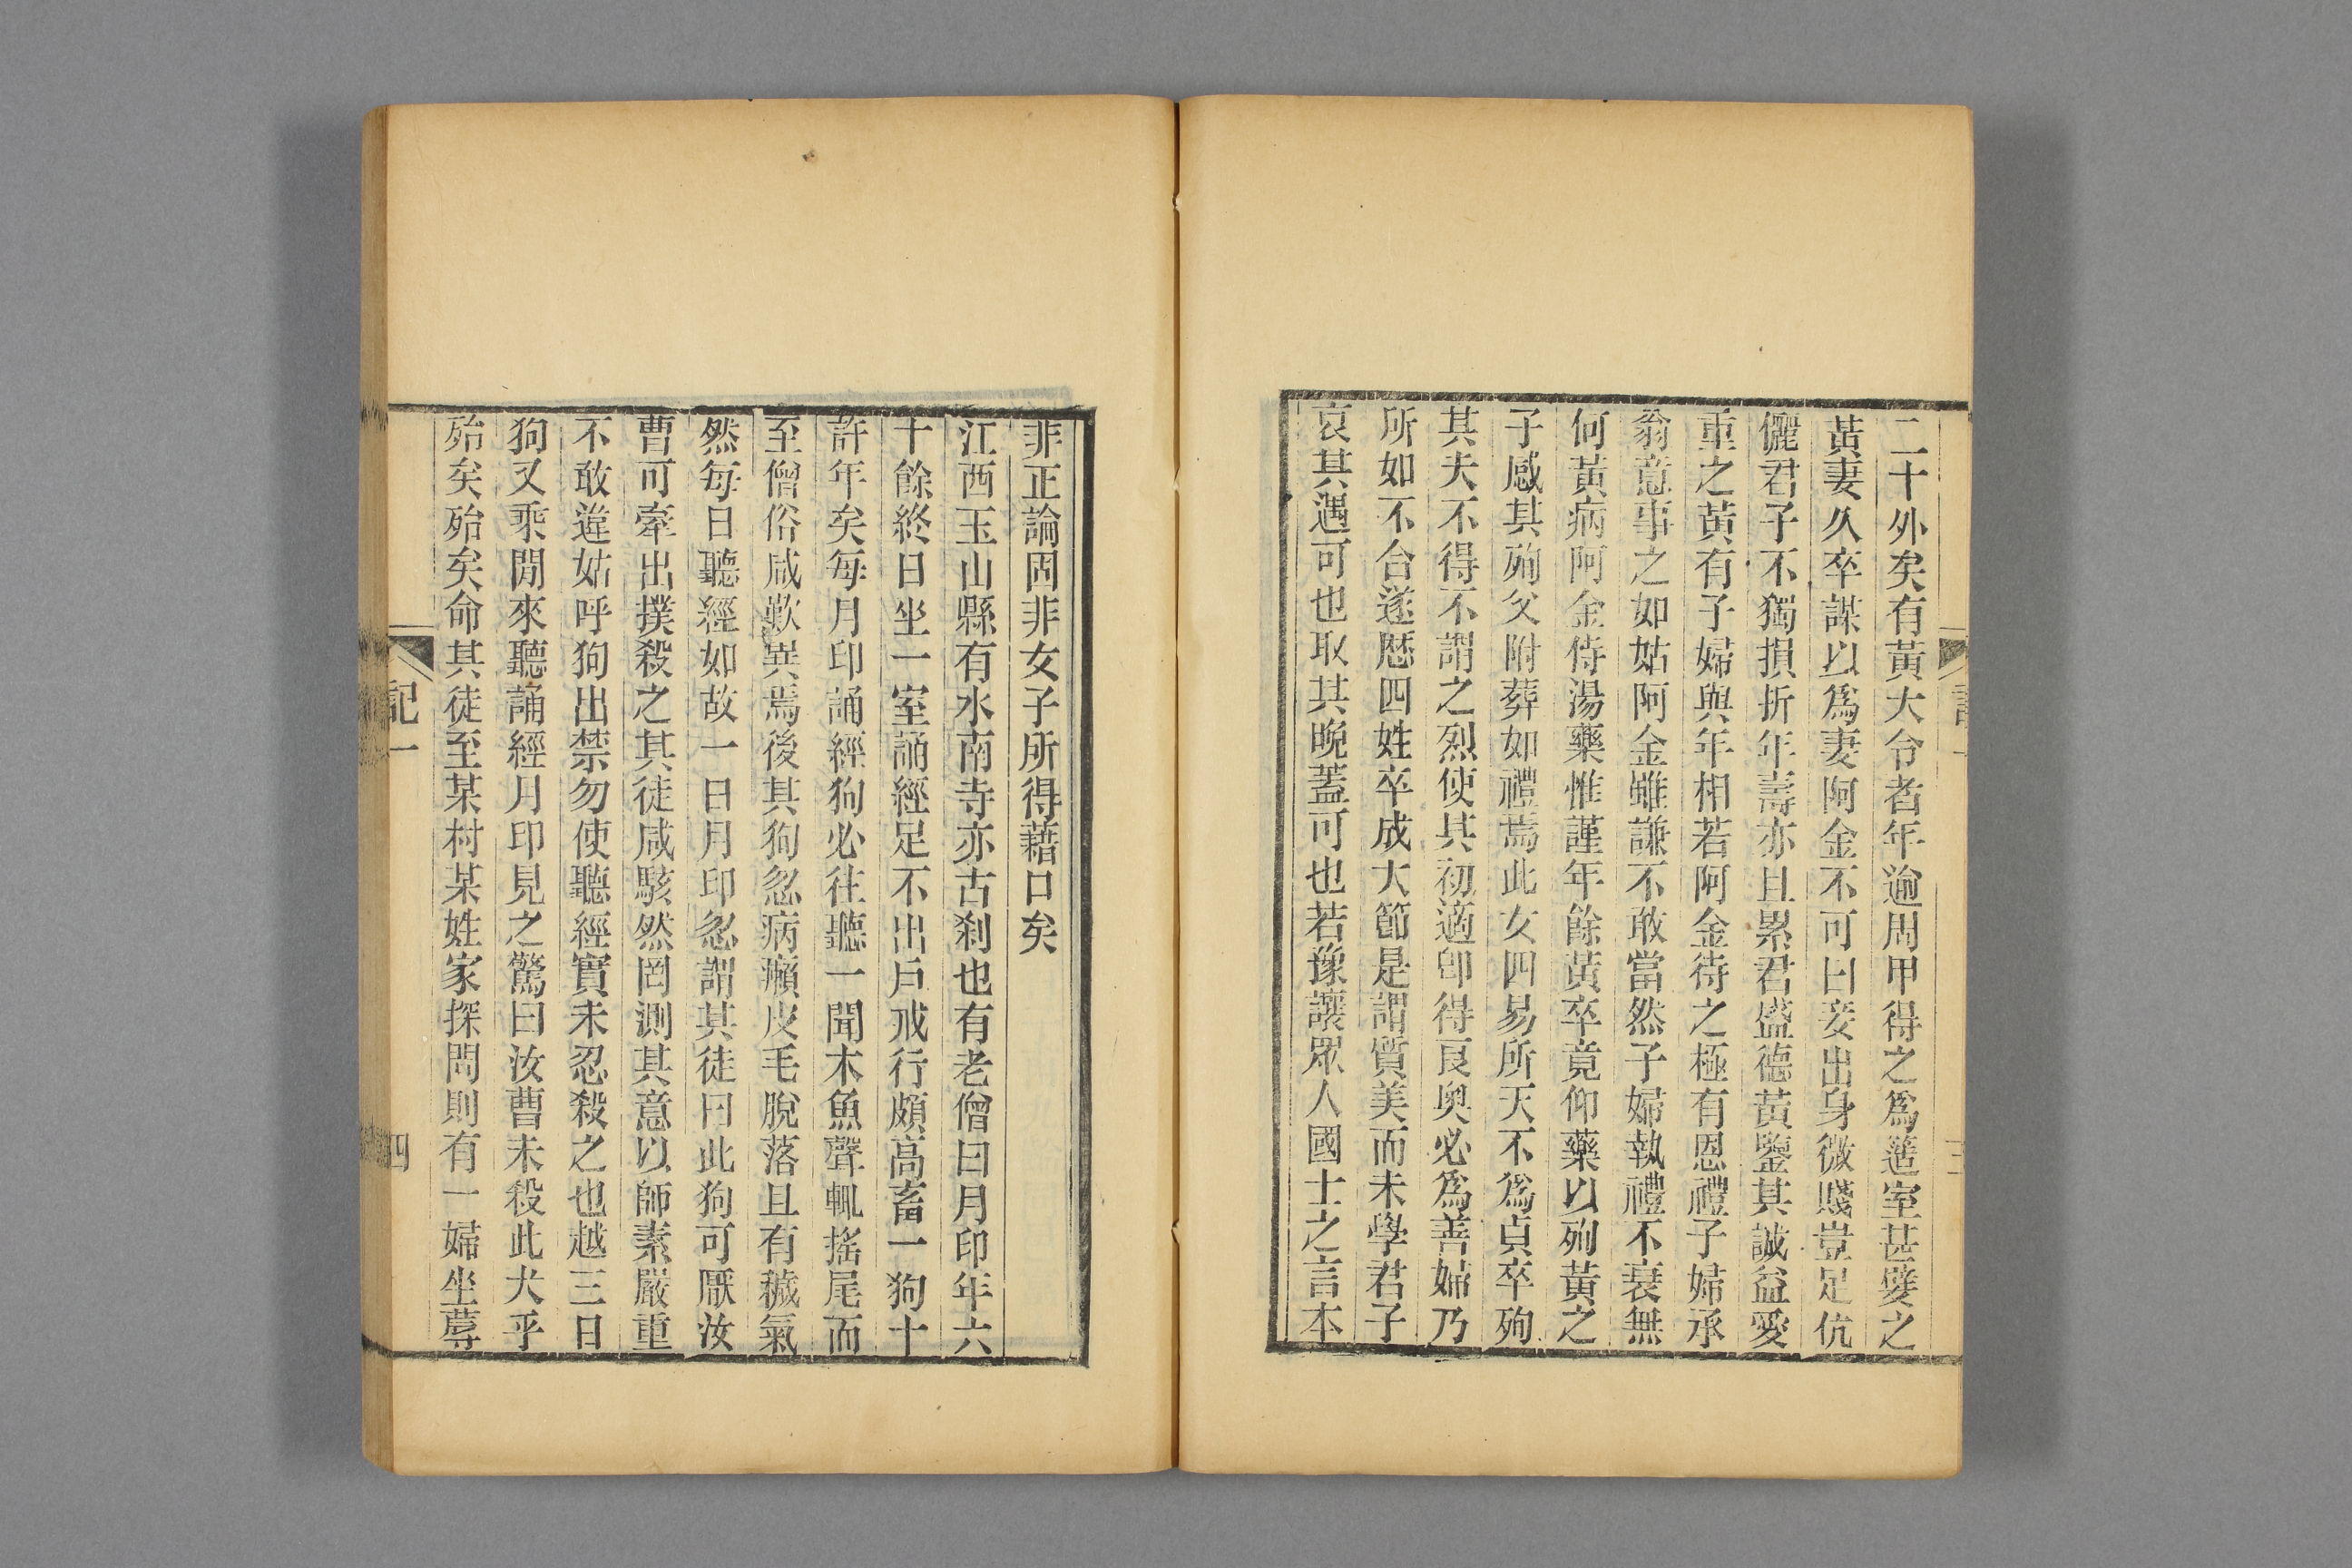 二十外矣有黃大令者年逾周甲得之爲簉室甚嬖之
黃妻久卒謀以爲妻阿金不可曰妾出身微賤豈足伉
儷君子不獨損折年壽亦且累君盛德黃鑒其誠益愛
重之黃有子婦與年相若阿金待之極有恩禮子婦承
翁意事之如姑阿金雖謙不敢當然子婦執禮不衰無
何黃病阿金侍湯藥惟謹年餘黃卒竟仰藥以殉黃之
子感其殉父附葬如禮焉此女四易所天不爲貞卒殉
其夫不得不謂之烈使其初適卽得良奧必爲善婦乃
所如不合遂歷四姓卒成大節是謂質美而未學君子
哀其遇可也取其晚蓋可也若豫讓眾人國士之言本
非正論固非女子所得藉口矣
江西玉山縣有水南寺亦古剎也有老僧曰月印年六
十餘終日坐一室誦經足不出戶戒行頗高畜一狗十
許年矣每月印誦經狗必往聽一聞木魚聲輒搖尾而
至僧俗咸歎異焉後其狗忽病癩皮毛脫落且有穢氣
然每日聽經如故一日月印忽謂其徒曰此狗可厭汝
曹可牽出撲殺之其徒咸駭然罔測其意以師素嚴重
不敢違姑呼狗出禁勿使聽經實未忍殺之也越三日
狗又乘閒來聽誦經月印見之驚曰汝曹未殺此犬乎
殆矣殆矣命其徒至某村某姓家探問則有一婦坐蓐
記一
四